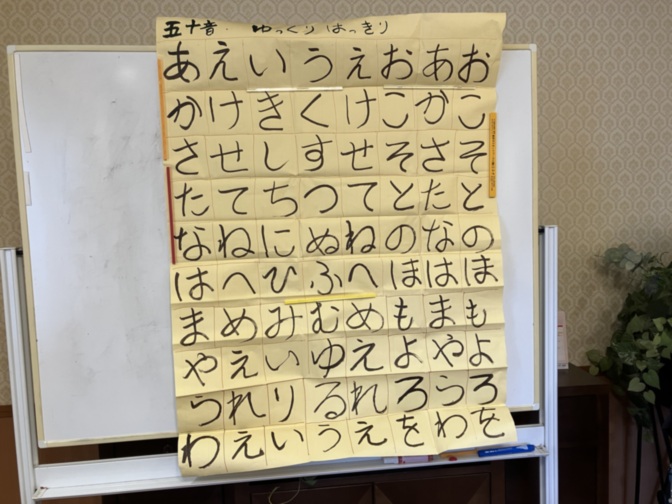 五十音 ゆっくり はっきり
あえいうえおあお
かけきくけこかこ
させしすせそさそ
たてちつてとたと
なねにぬねのなの
はへひふへほはほ
まめみむめもまも
やえいゆえよやよ
られりるれろらろ
わえいうえをわを